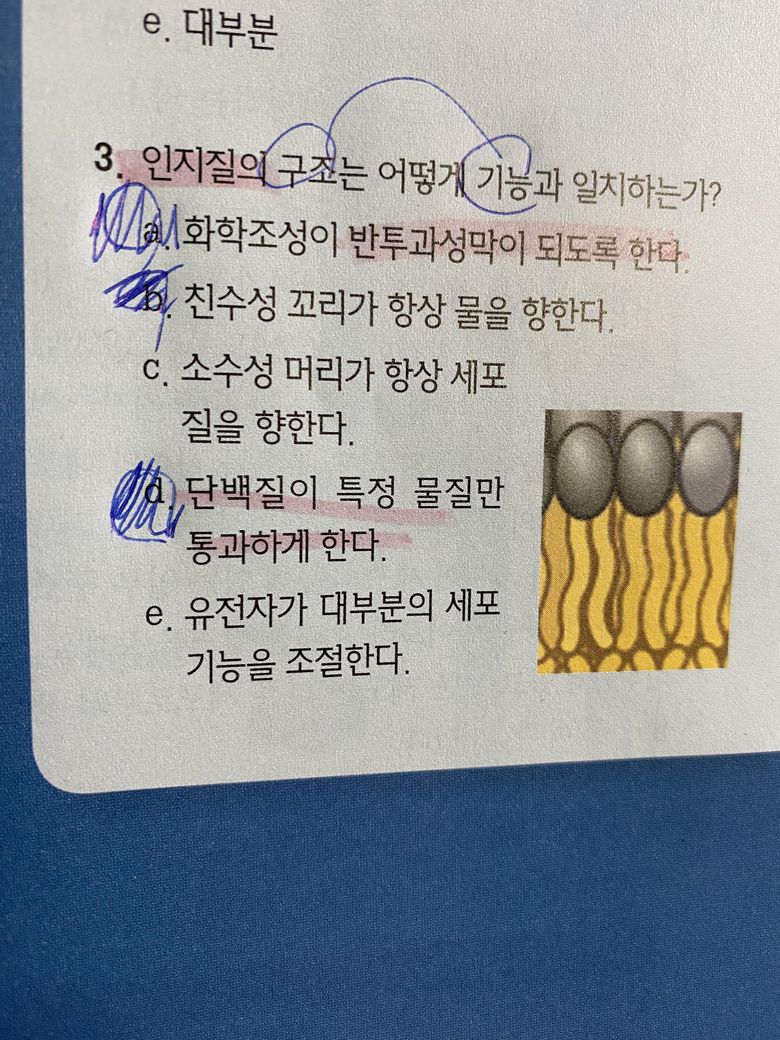 e. 대부분
3. 인지질의 구조는 어떻게 기능과 일치하는가?
a. 화학조성이 반투과성막이 되도록 한다.
b. 친수성 꼬리가 항상 물을 향한다.
c. 소수성 머리가 항상 세포
질을 향한다.
d. 단백질이 특정 물질만
통과하게 한다.
e. 유전자가 대부분의 세포
기능을 조절한다.